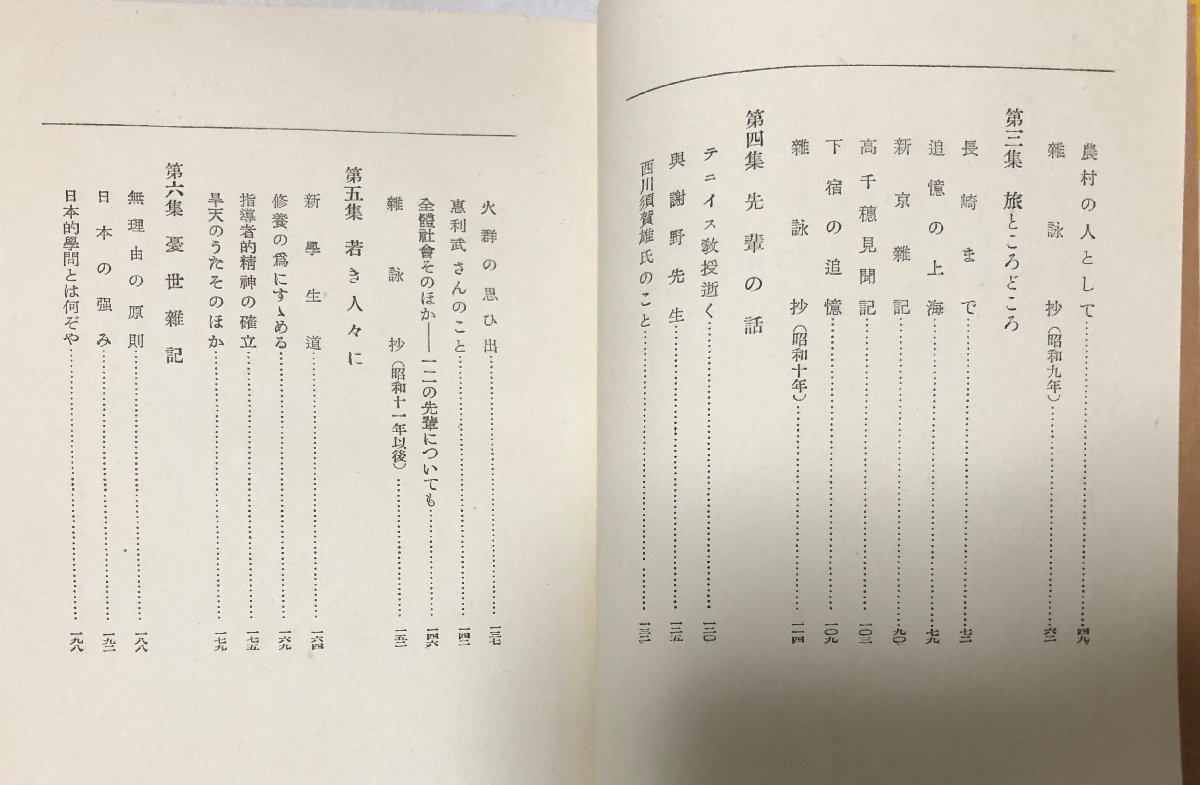 農村の人として……四九
雜詠抄（昭和九年）……六二
第三集 旅ところどころ
長崎まで……七二
追憶の上海……七九
新京雜記……九〇
高千穗見聞記……一〇二
下宿の追憶……一〇九
雜詠抄（昭和十年）……一一四
第四集 先輩の話
テニイス敎授逝く……一二〇
與謝野先生……一二五
西川須賀雄氏のこと……一三二
火群の思ひ出……一三七
惠利武さんのこと……一四二
全體社會そのほか――一二の先輩についても……一四六
雜詠抄（昭和十一年以後）……一五二
第五集 若き人々に
新學生道……一六四
修養の爲にすゝめる……一六九
指導者的精神の確立……一七五
旱天のうたそのほか……一七九
第六集 憂世雜記
無理由の原則……一八八
日本の强み……一九二
日本的學問とは何ぞや……一九八